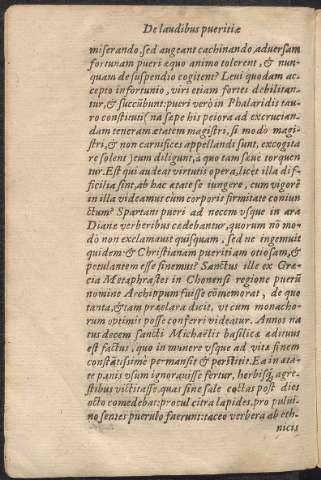 De laudibus pueritiæ
miserando, sed augeant cachinando, adversam
fortunam pueri æquo animo tolerent, & nun-
quam de suspendio cogitent? Leui quodam ac-
cepto infortunio, viri etiam fortes debilitan-
tur, & succūbunt: pueri verò in Phalaridis tau-
ro constituti na sæpe his peiora ad excrucian-
dam teneram ætatem magistri, si modò magi-
stri, & non carnifices appellandi sunt, excogita
re solent) cum diligunt, a quo tam sæuè torquen
tur. Est qui audeat virtutis opera, licet illa dif-
ficilia sint, ab hac ætate se iungere, cum vigorē
in illa videamus cum corporis firmitate coniun
ctum? Spartani pueri ad necem vsque in ara
Dianæ verberibus cædebantur, quorum nō mo-
dò non exclamauit quisquam, sed ne ingemuit
quidem: & Christianam pueritiam otiosam, &
petulantem esse sinemus? Sanctus ille ex Græ-
cia Metaphrastes in Chonensi regione puerū
nomine Archippum fuisse cōmemorat, de quo
tanta, & tam præclara dicit, vt cum monacho-
rum optimis posse conferri videatur. Annos na
tus decem sancti Michaëlis basilicæ adituus
est factus, quo in munere vsque ad vitæ finem
constātissimè permansit & perstitit. Ea in æta-
te panis vsum ignorauisse fertur, herbisq́; agre-
stibus victitasse, quas sine sale coctas post dies
octo comedebat: procul citra lapides, pro pului-
no sentes puerulo fuerunt: taceo verbera ab eth-
nicis